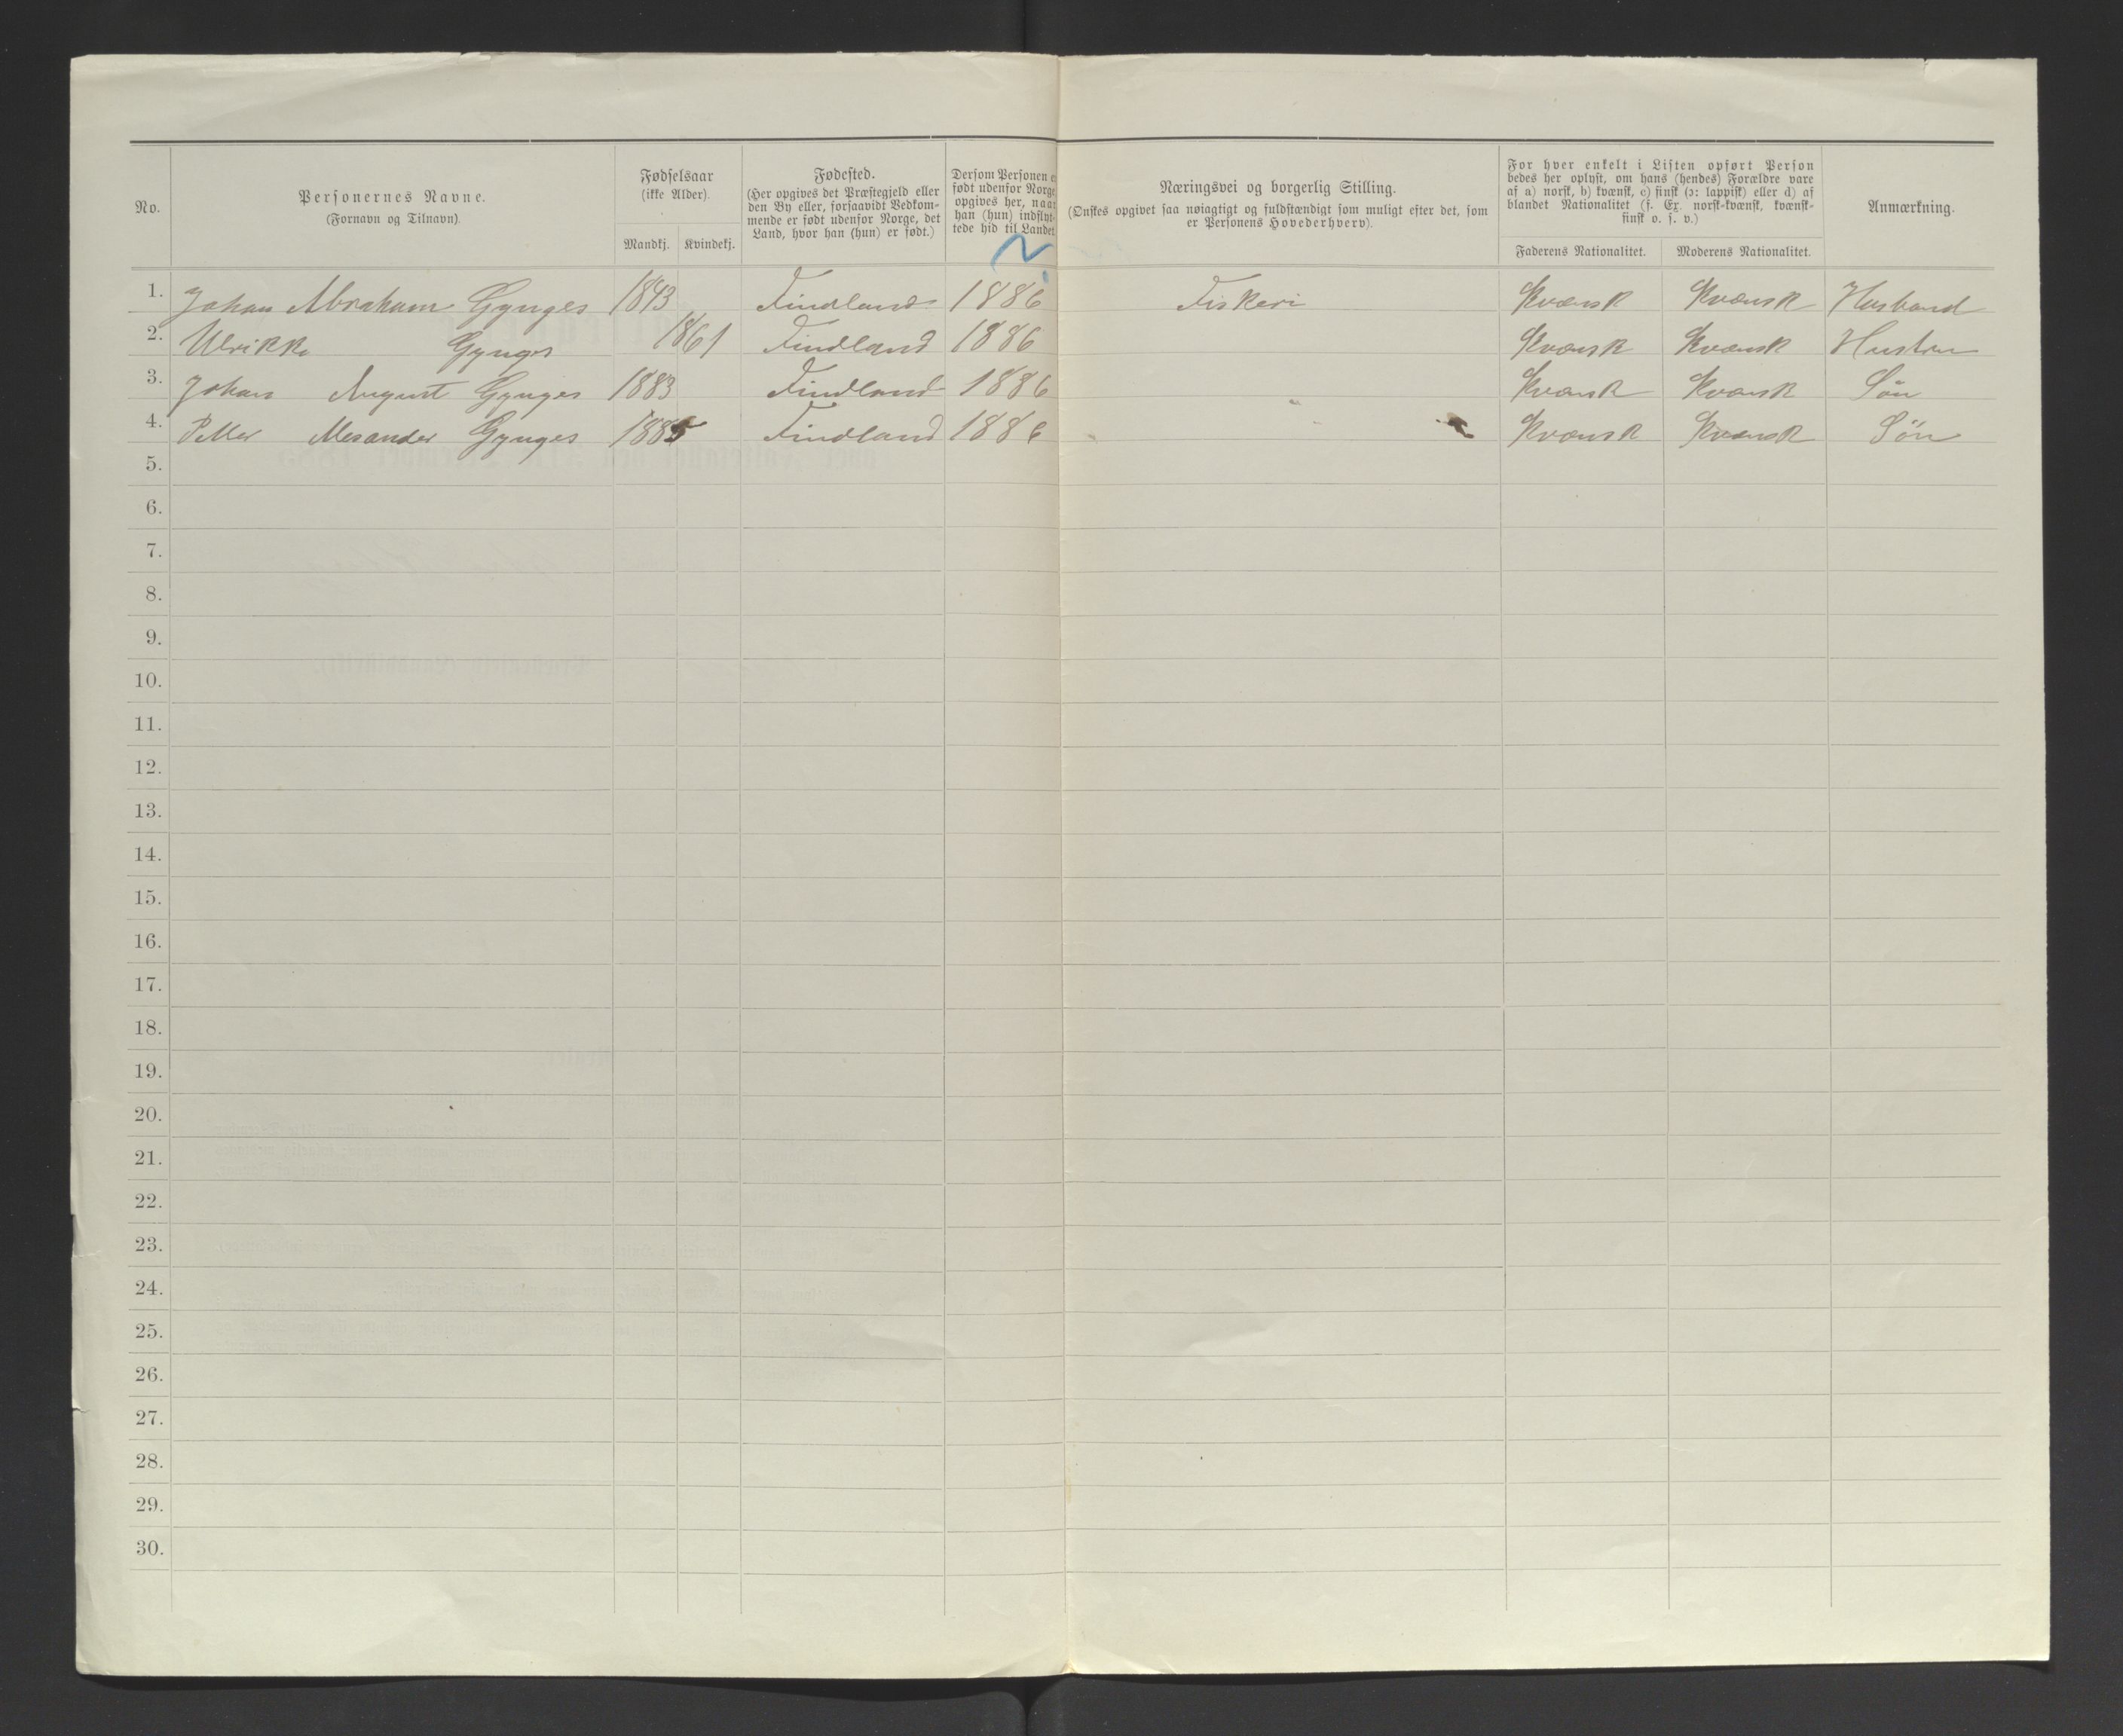 No.
Personernes Navne.
(Fornavn og Tilnavn).
Fødselsaar
(ikke Alder).
Mandkj. Kvindekj.
Fødested.
(Her opgives det Præstegjeld eller
den By eller, forsaavidt Vedkom-
mende er født udenfor Norge, det
Land, hvor han (hun) er født.)
Dersom Personen e
født udenfor Norge
opgives her, naar
han (hun) indflyt-
tede hid til Landet
Næringsvei og borgerlig Stilling.
(Ønskes opgivet saa nøiagtigt og fuldstændigt som muligt efter det, som
er Personens Hovederhverv).
For hver enkelt i Listen opført Person
bedes her oplyst, om hans (hendes) Forældre vare
af a) norsk, b) kvænsk, c) finsk (ɔ: lappisk) eller d) af
blandet Nationalitet (f. Ex. norsk-kvænsk, kvænsk-
finsk o. s. v.)
Faderens Nationalitet. Moderens Nationalitet.
Anmærkning.
1. Johan Abraham Gynges 1843 Findland 1886 Fiskeri Kvænsk Kvænsk Husband
2. Ulrikke Gynges 1861 Findland 1886 Kvænsk Kvænsk Hustru
3. Johan August Gynges 1883 Findland 1886 Kvænsk Kvænsk Sön
4. Petter Gynges 1885 Findland 1886 Kvænsk Kvænsk Sön
5.
6.
7.
8.
9.
10.
11.
12.
13.
14.
15.
16.
17.
18.
19.
20.
21.
22.
23.
24.
25.
26.
27.
28.
29.
30.